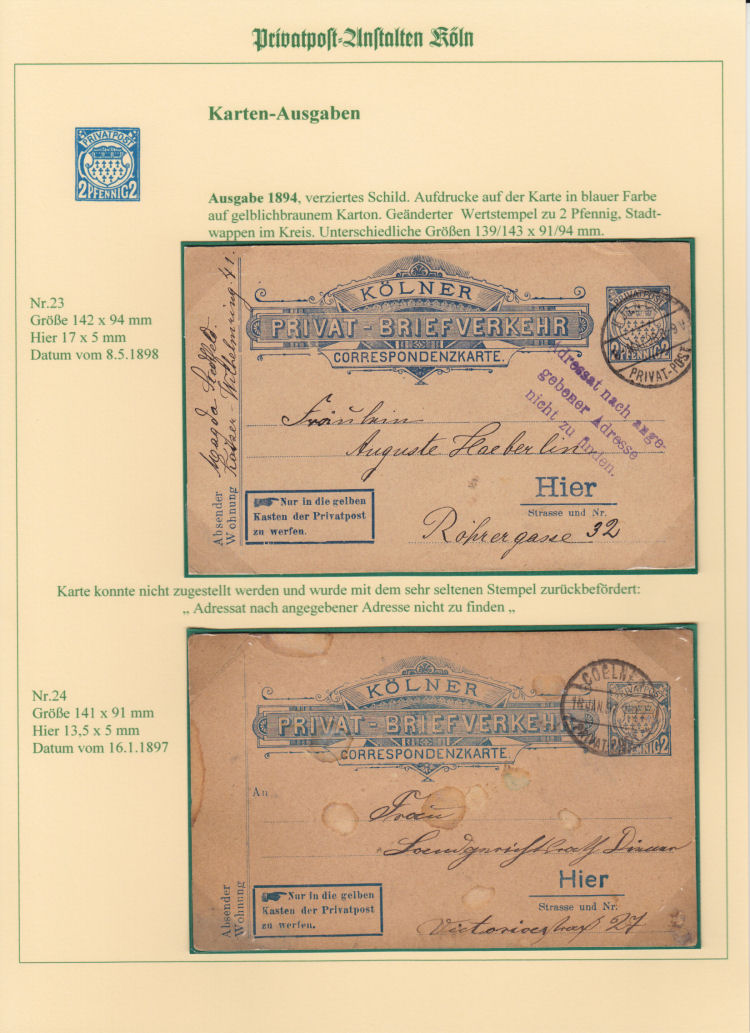 Privatpost-Anstalten Köln
Karten-Ausgaben
PRIVATPOST
2 PFENNIG 2
Ausgabe 1894, verziertes Schild. Aufdrucke auf der Karte in blauer Farbe
auf gelblichbraunem Karton. Geänderter Wertstempel zu 2 Pfennig, Stadt-
wappen im Kreis. Unterschiedliche Größen 139/143 x 91/94 mm.
Nr.23
Größe 142 x 94 mm
Hier 17 x 5 mm
Datum vom 8.5.1898
KÖLNER
PRIVAT-BRIEFVERKEHR
CORRESPONDENZKARTE.
PRIVATPOST
PFENNIG 2
PRIVAT-POST
Adressat nach ange-
gebener Adresse
nicht zu finden.
Absender Magda
Wohnung Kaiser-Wilhelmring 41.
Fräulein
Auguste Haeberlin
Hier
Strasse und Nr.
Röhrergasse 32
Nur in die gelben
Kasten der Privatpost
zu werfen.
Karte konnte nicht zugestellt werden und wurde mit dem sehr seltenen Stempel zurückbefördert:
„ Adressat nach angegebener Adresse nicht zu finden „
Nr.24
Größe 141 x 91 mm
Hier 13,5 x 5 mm
Datum vom 16.1.1897
KÖLNER
PRIVAT-BRIEFVERKEH
CORRESPONDENZKARTE.
COELN
16 JAN 97
PRIVAT-P
PRIVATPOST
PFENNIG 2
An
Frau
Landgerichtsrath
Hier
Strasse und Nr.
Victoriastraß 27
Absender
Wohnung
Nur in die gelben
Kasten der Privatpost
zu werfen.